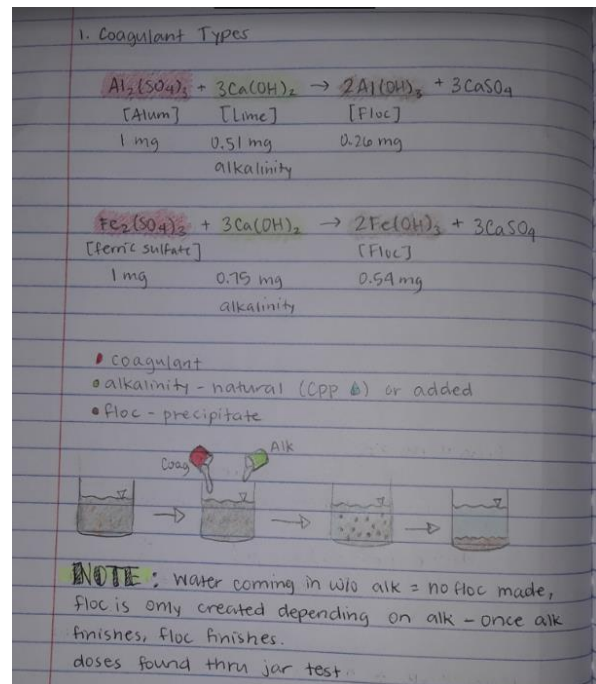 1. Coagulant Types
Al₂(SO4)₃ + 3Ca(OH)₂ → 2Al(OH)₃ + 3CaSO4
[Alum] [Lime] [Floc]
1 mg 0.51 mg 0.26 mg
alkalinity
Fe₂(SO4)₃ + 3Ca(OH)₂ → 2Fe(OH)₃ + 3CaSO4
[ferric sulfate] [Floc]
1 mg 0.75 mg 0.54 mg
alkalinity
• coagulant
• alkalinity - natural (Cpp) or added
• floc - precipitate
Coag Alk
NOTE: water coming in w/o alk = no floc made,
floc is only created depending on alk - once alk
finishes, floc finishes.
doses found thru jar test